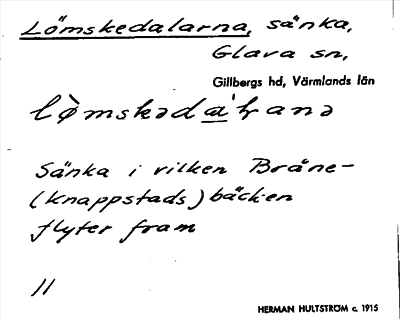 Lömskedalarna, sänka,
Glava sn,
Gillbergs hd, Värmlands län
Sänka i vilken Bråne-
(Knappstads) bäcken
flyter fram
11
HERMAN HULTSTRÖM c. 1915